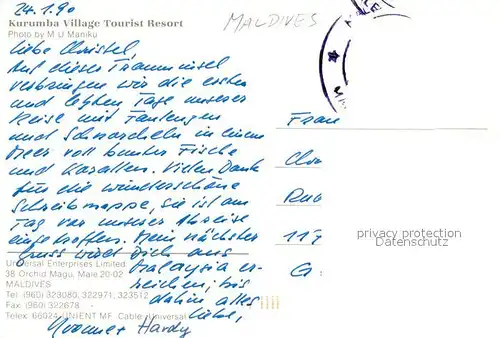 24.1.90
MALDIVES
Kurumba Village Tourist Resort
Photo by M U Maniku
Liebe Christel,
Auf dieser Trauminsel
verbringen wir die ersten
und letzten Tage unserer
Reise mit Faulenzen
und Schnorcheln in einem
Meer voll bunter Fische
und Korallen. Vielen Dank
für die wunderschöne
Schreibmappe, sie ist am
Tag vor unserer Abreise
eingetroffen. Mein nächster
Gruss wird Dich aus
Malaysia er-
reichen, bis
dahin alles
Liebe,
Hardy
Universal Enterprises Limited
38 Orchid Magu, Male 20-02
MALDIVES
Tel: (960) 323080, 322971, 323512
Fax: (960) 322678
Telex: 66024 UNIENT MF. Cable: Universal
Frau
117
G
privacy protection
Datenschutz